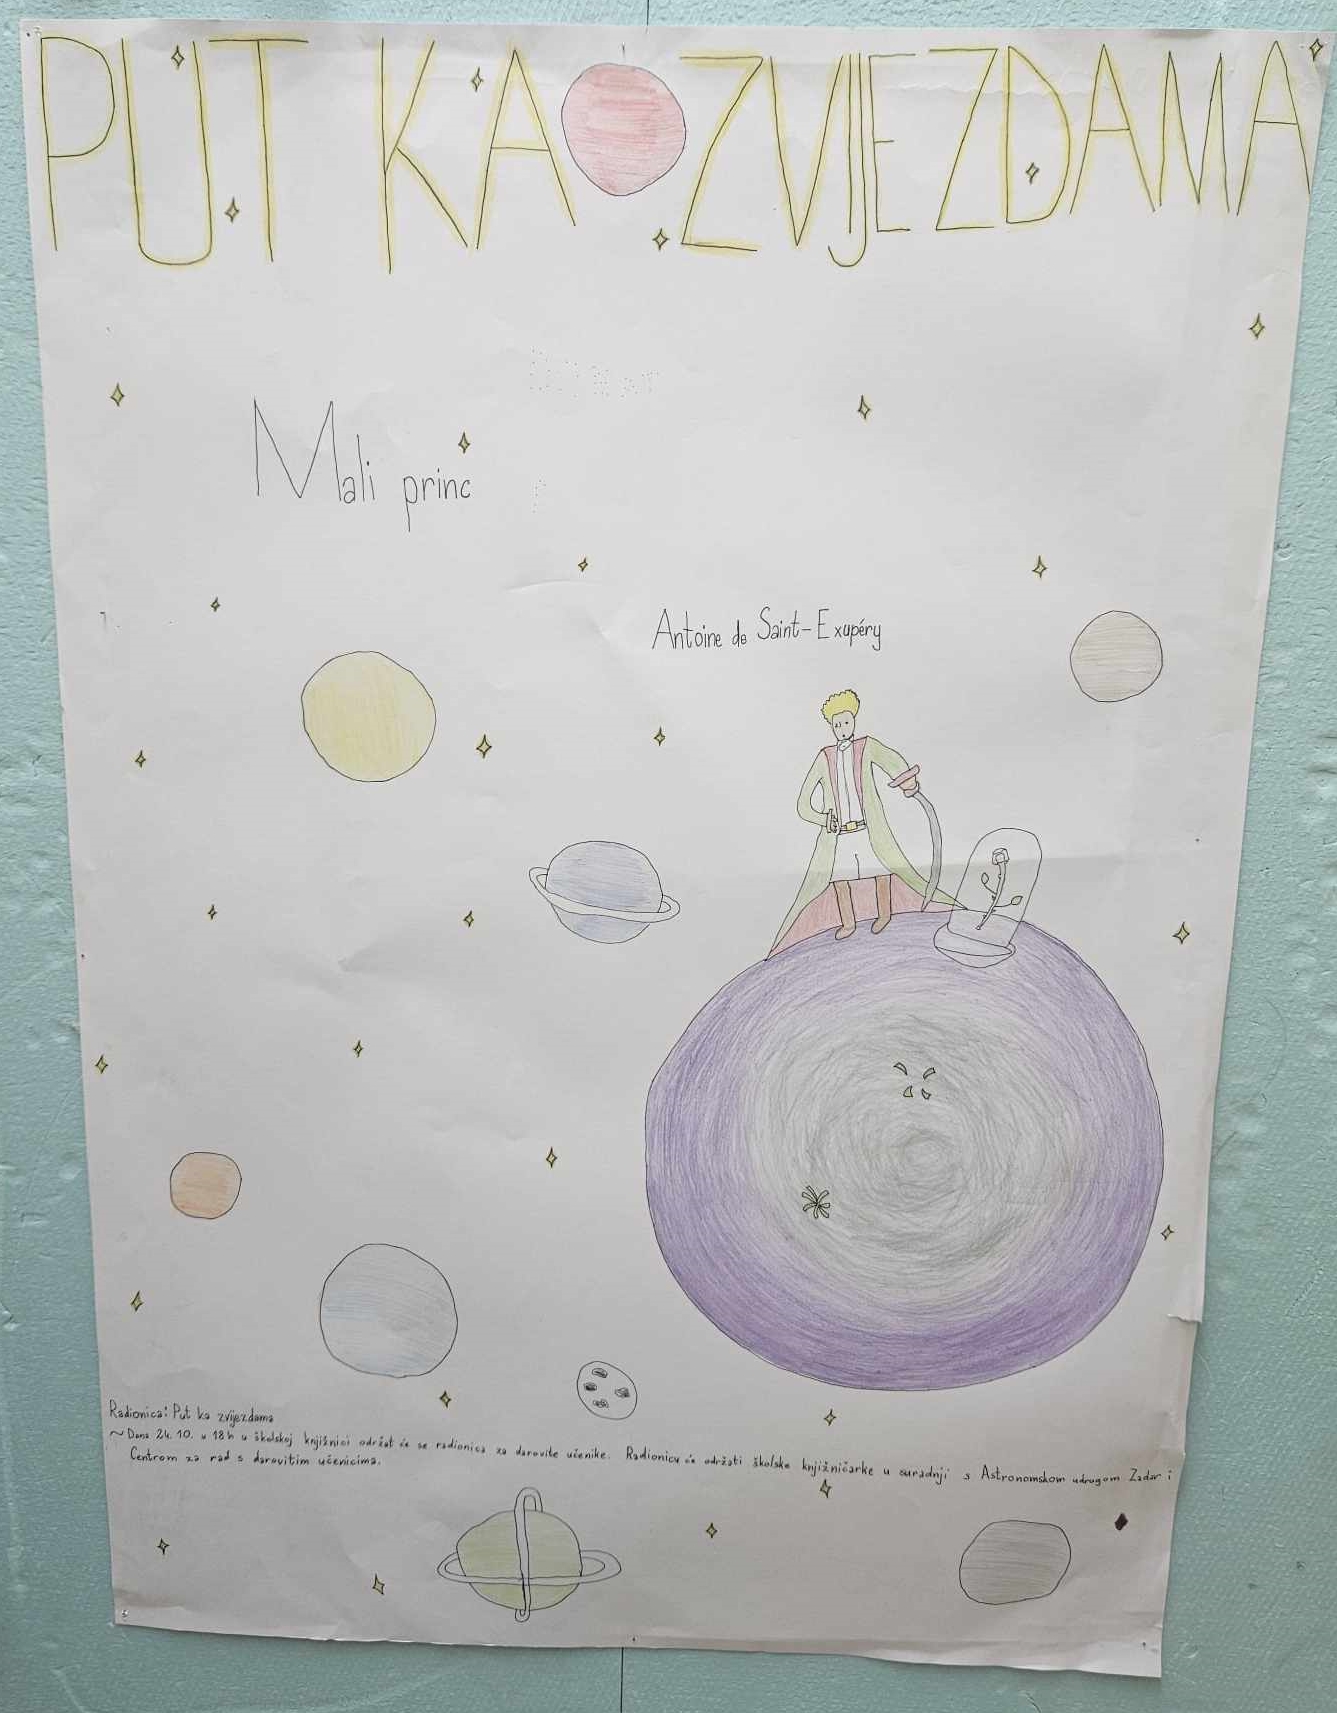 PUT KA ZVIJEZDAMA
Mali princ
Antoine de Saint-Exupéry
Radionica: Put ka zvijezdama
~ Dana 24. 10. u 18h u školskoj knjižnici održat će se radionica za darovite učenike. Radionicu će održati školske knjižničarke u suradnji s Astronomskom udrugom Zadar i
Centrom za rad s darovitim učenicima.